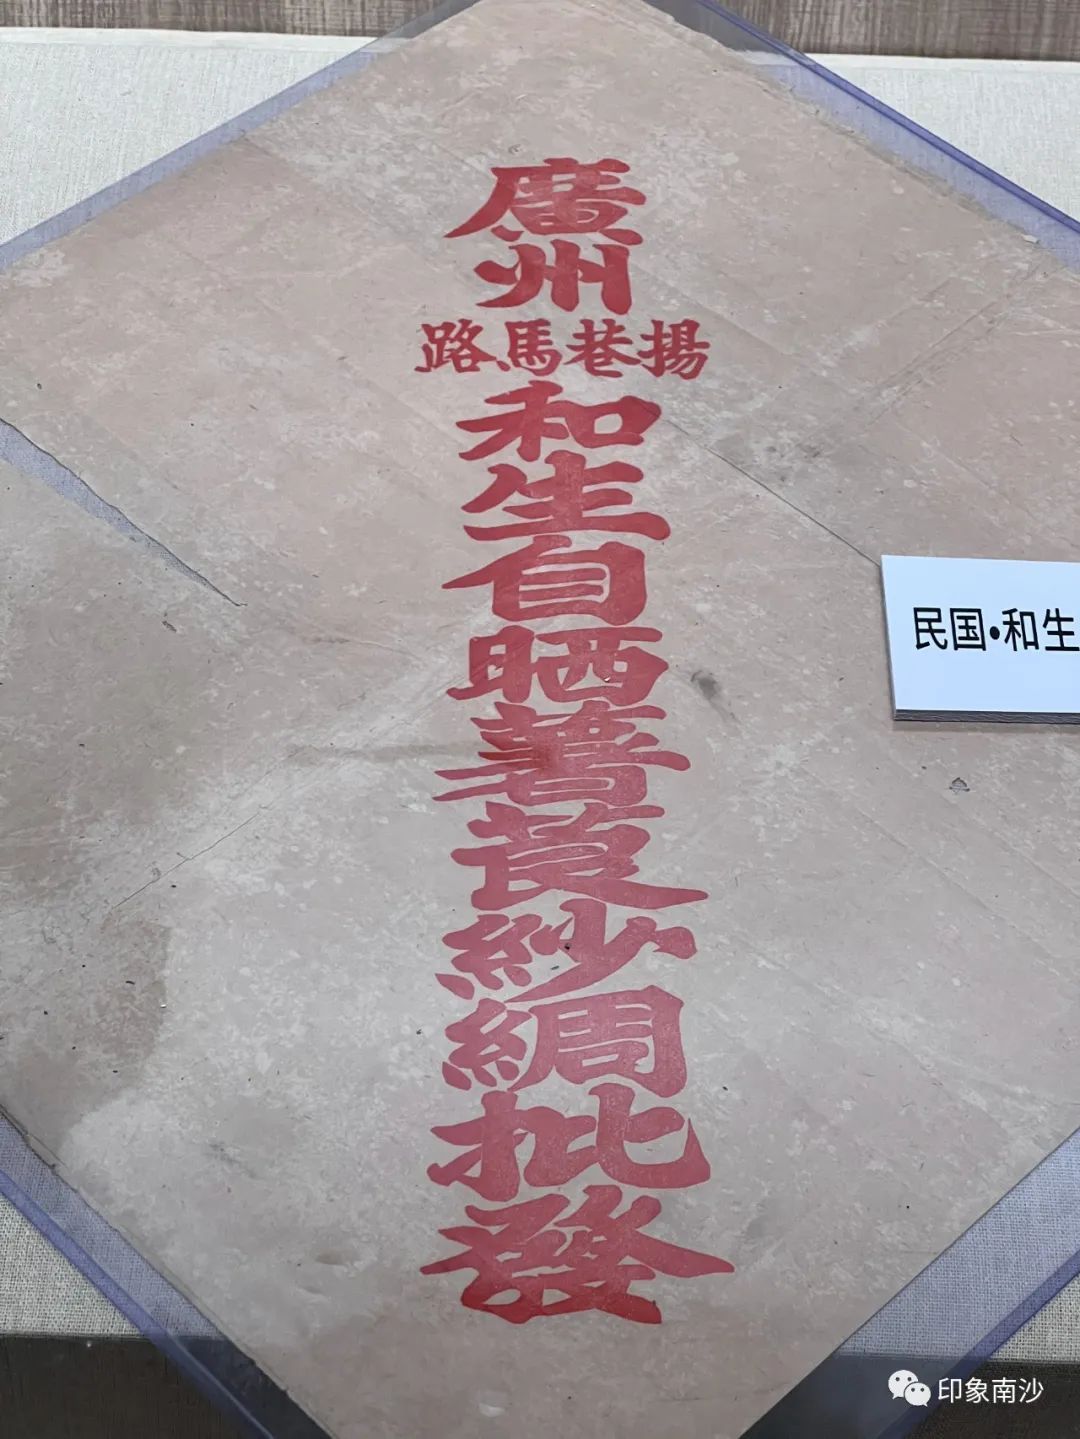 廣州
揚巷馬路
和生自晒薯莨紗綢批發
民国•和生
印象南沙